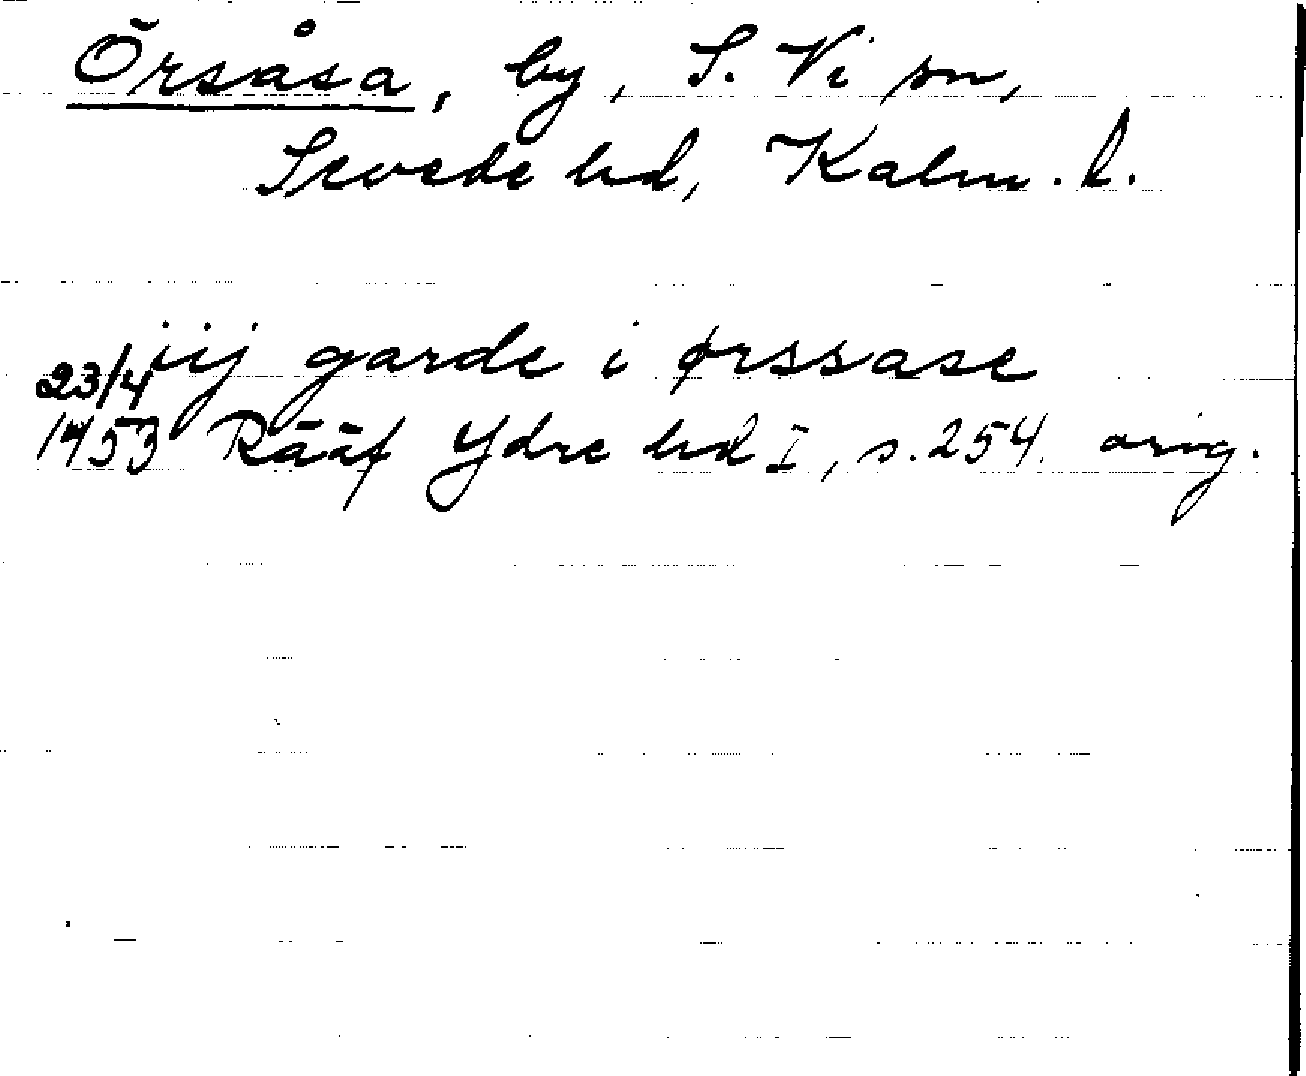 Örsåsa, by, S. Vi sn,
Sevede hd, Kalm. l.
iij garde i ørssase
23/4
1453 Rääf Ydre hd I, s. 254. orig.